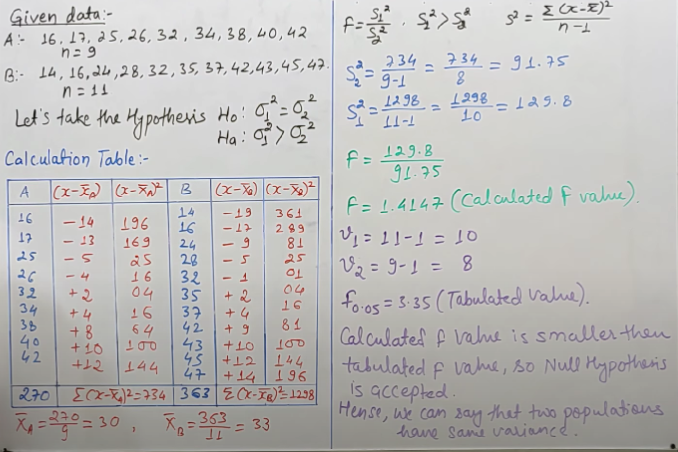 Given data:-
A:- 16, 17, 25, 26, 32, 34, 38, 40, 42
n = 9
B:- 14, 16, 24, 28, 32, 35, 37, 42, 43, 45, 47.
n = 11
Let's take the Hypothesis H₀: σ₁² = σ₂²
Ha: σ₁² > σ₂²
Calculation Table:-
A (x-x̄A) (x-x̄A)² B (x-x̄B) (x-x̄B)²
16 -14 196 14 -19 361
17 -13 169 16 -17 289
25 -5 25 24 -9 81
26 -4 16 28 -5 25
32 +2 04 32 -1 01
34 +4 16 35 +2 04
38 +8 64 37 +4 16
40 +10 100 42 +9 81
42 +12 144 43 +10 100
45 +12 144
47 +14 196
270 Σ(x-x̄A)²=734 363 Σ(x-x̄B)²=1298
x̄A = 270/9 = 30 , x̄B = 363/11 = 33
F = S₁²/S₂² . S₁² > S₂² S² = Σ(x-x̄)²/n-1
S₂² = 734/9-1 = 734/8 = 91.75
S₁² = 1298/11-1 = 1298/10 = 129.8
F = 129.8/91.75
F = 1.4147 (Calculated F value).
ν₁ = 11-1 = 10
ν₂ = 9-1 = 8
F0.05 = 3.35 (Tabulated value).
Calculated F value is smaller then
tabulated F value, so Null Hypothesis
is accepted.
Hence, we can say that two populations
have same variance.